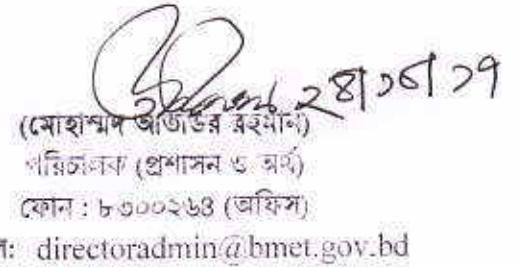 ২৪|১০|১৭
(মোহাম্মদ আজিজুর রহমান)
পরিচালক (প্রশাসন ও অর্থ)
ফোন : ৮৩০০২৬৪ (অফিস)
ল: directoradmin@bmet.gov.bd